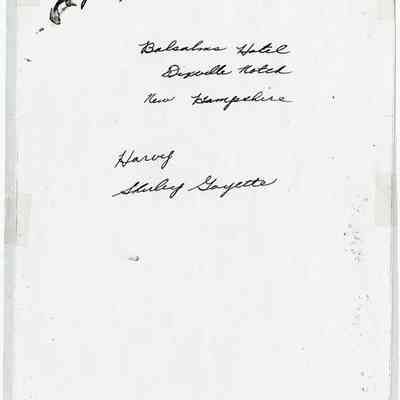 Balsalms Hotel
Dixville Notch
New Hampshire
Harvey
Shirley Goyette